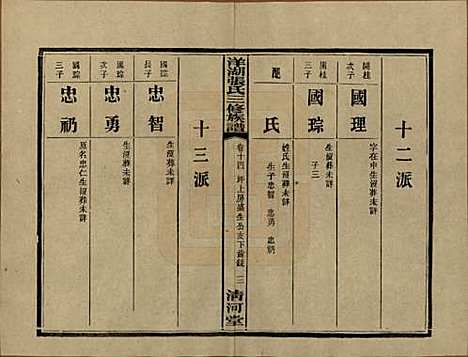 十二派
開桂
次子
國理
字在中生歿葬未詳
開桂
三子
國琮
生歿葬未詳
子三
配
氏
姓氏生歿葬未詳
生子忠智 忠勇 忠礽
洋湖張氏三修族譜
卷十四 坪上房盛生公支下齒錄 三
清河堂
十三派
國琮
長子
忠智
生歿葬未詳
國琮
次子
忠勇
生歿葬未詳
國琮
三子
忠礽
原名忠仁生歿葬未詳